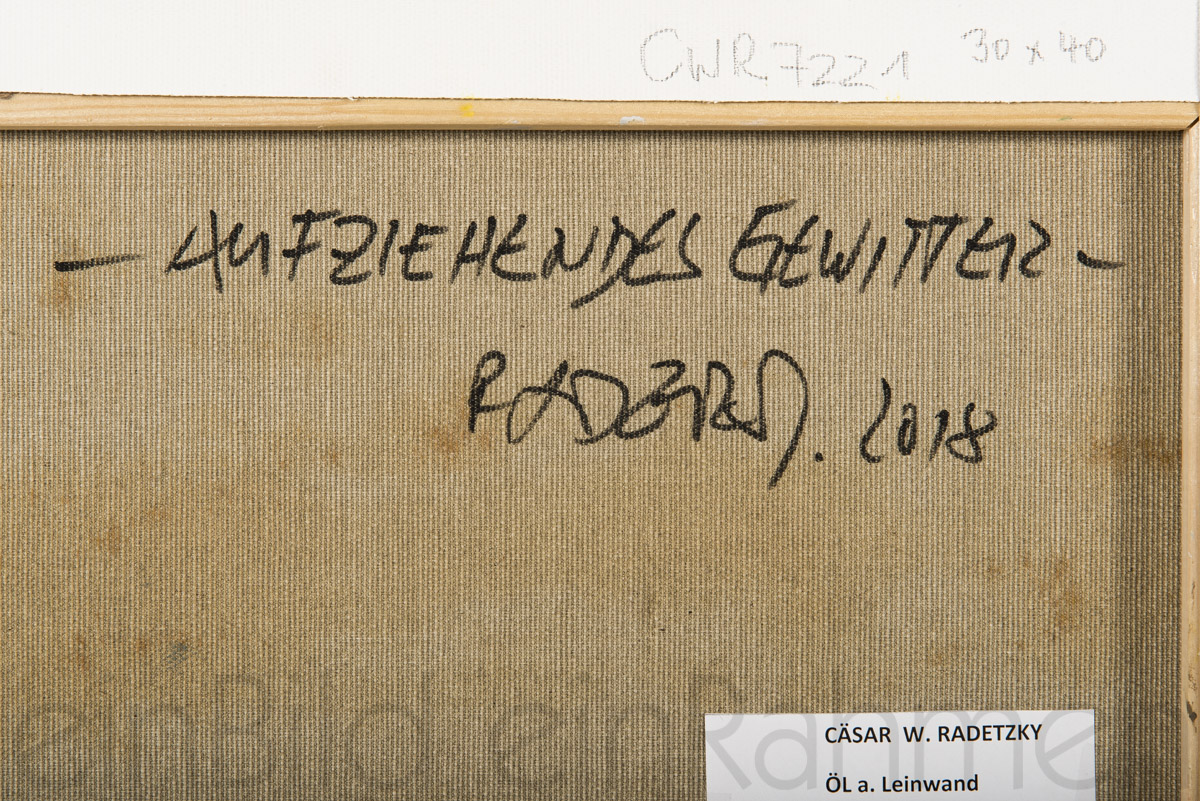 CWR7221 30 x 40
— AUFZIEHENDES GEWITTER –
2018
einBild einRahmen
CÄSAR W. RADETZKY
ÖL a. Leinwand